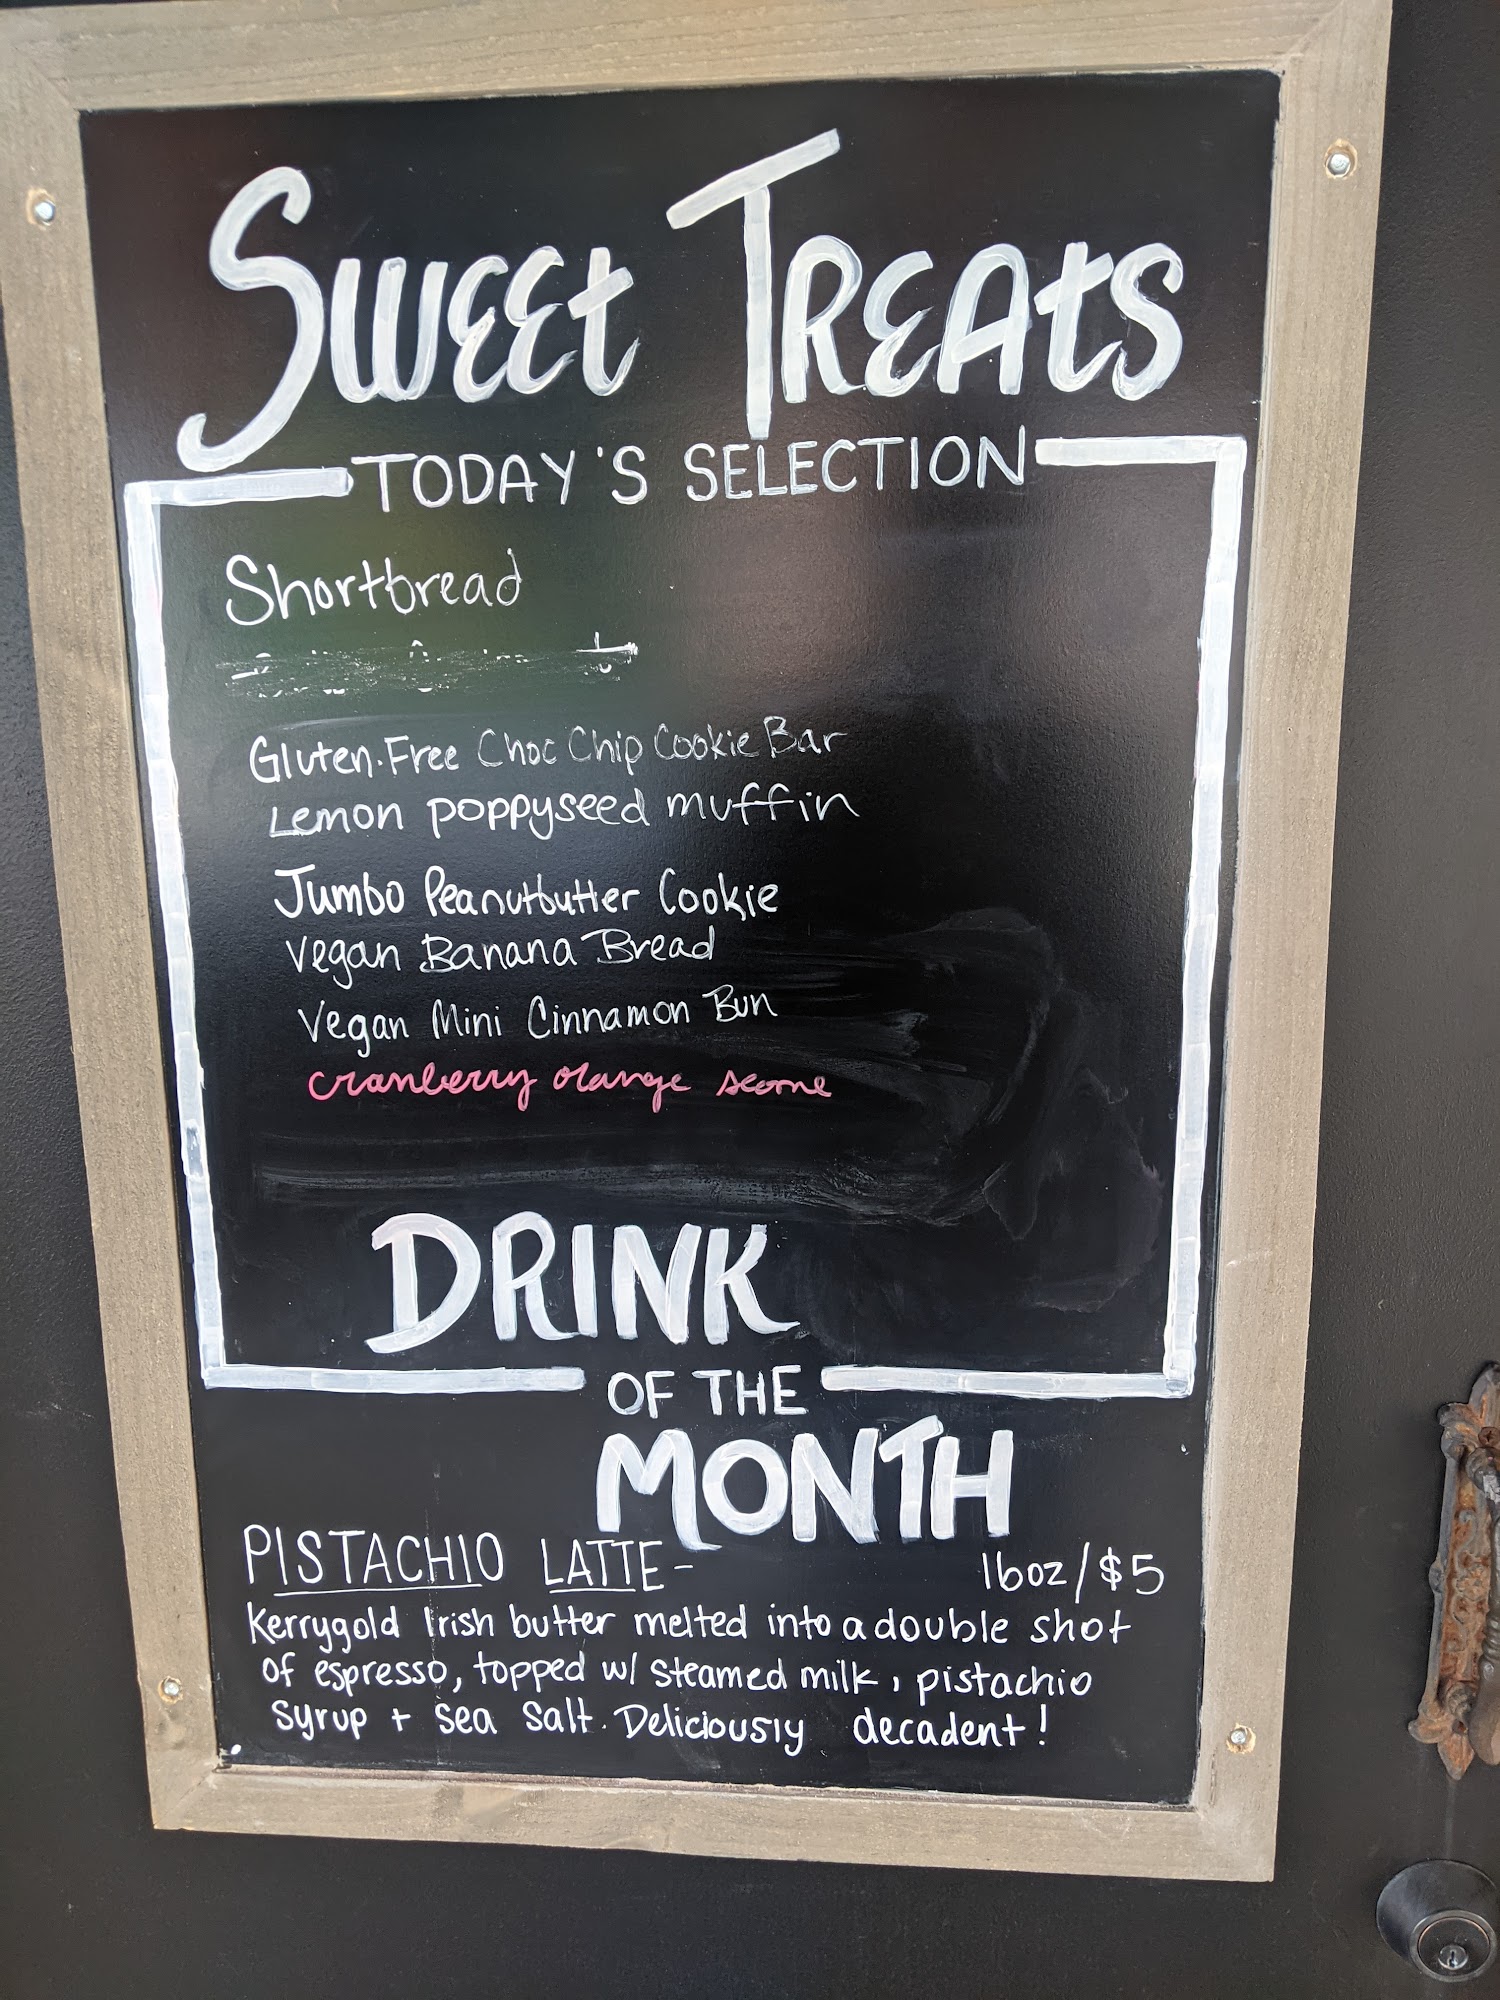 Sweet Treats
TODAY'S SELECTION
Shortbread
Gluten-Free Choc Chip Cookie Bar
Lemon poppyseed muffin
Jumbo Peanutbutter Cookie
Vegan Banana Bread
Vegan Mini Cinnamon Bun
cranberry orange scone
DRINK
OF THE
MONTH
PISTACHIO LATTE- 16oz/$5
Kerrygold Irish butter melted into a double shot
of espresso, topped w/ steamed milk, pistachio
syrup + sea salt. Deliciously decadent!